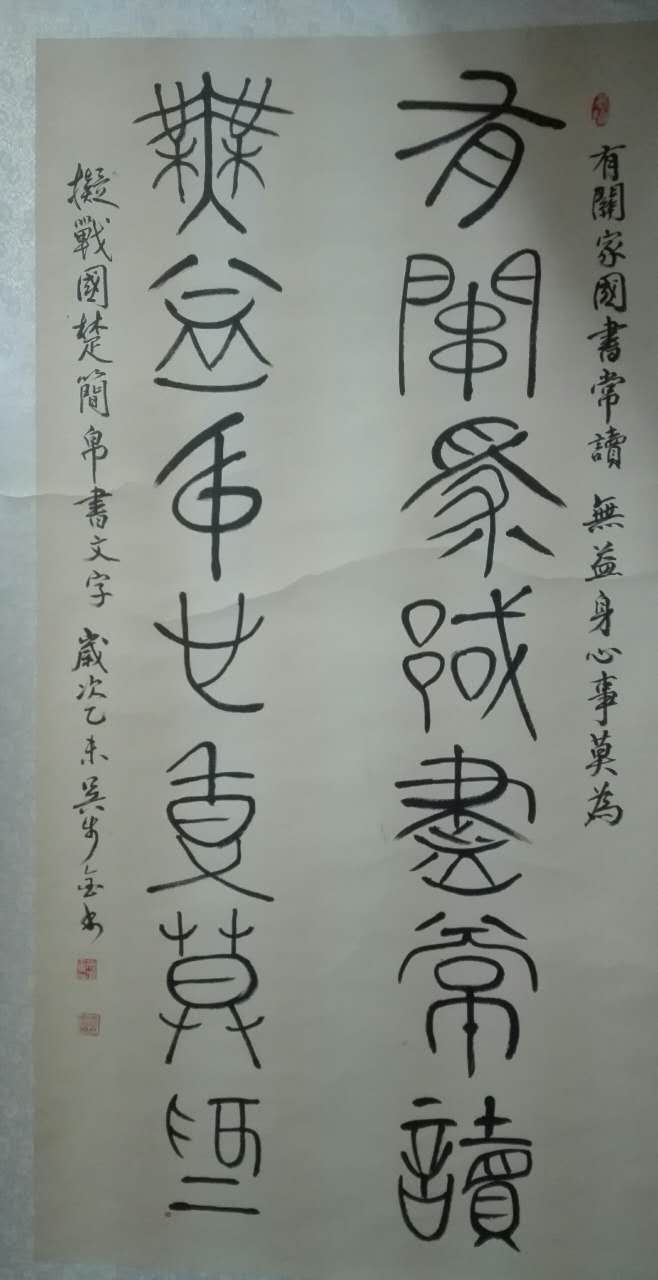 有關家國書常讀 無益身心事莫為
有關家國書常讀
無益身心事莫為
擬戰國楚簡帛書文字 歲次乙未吳步金書